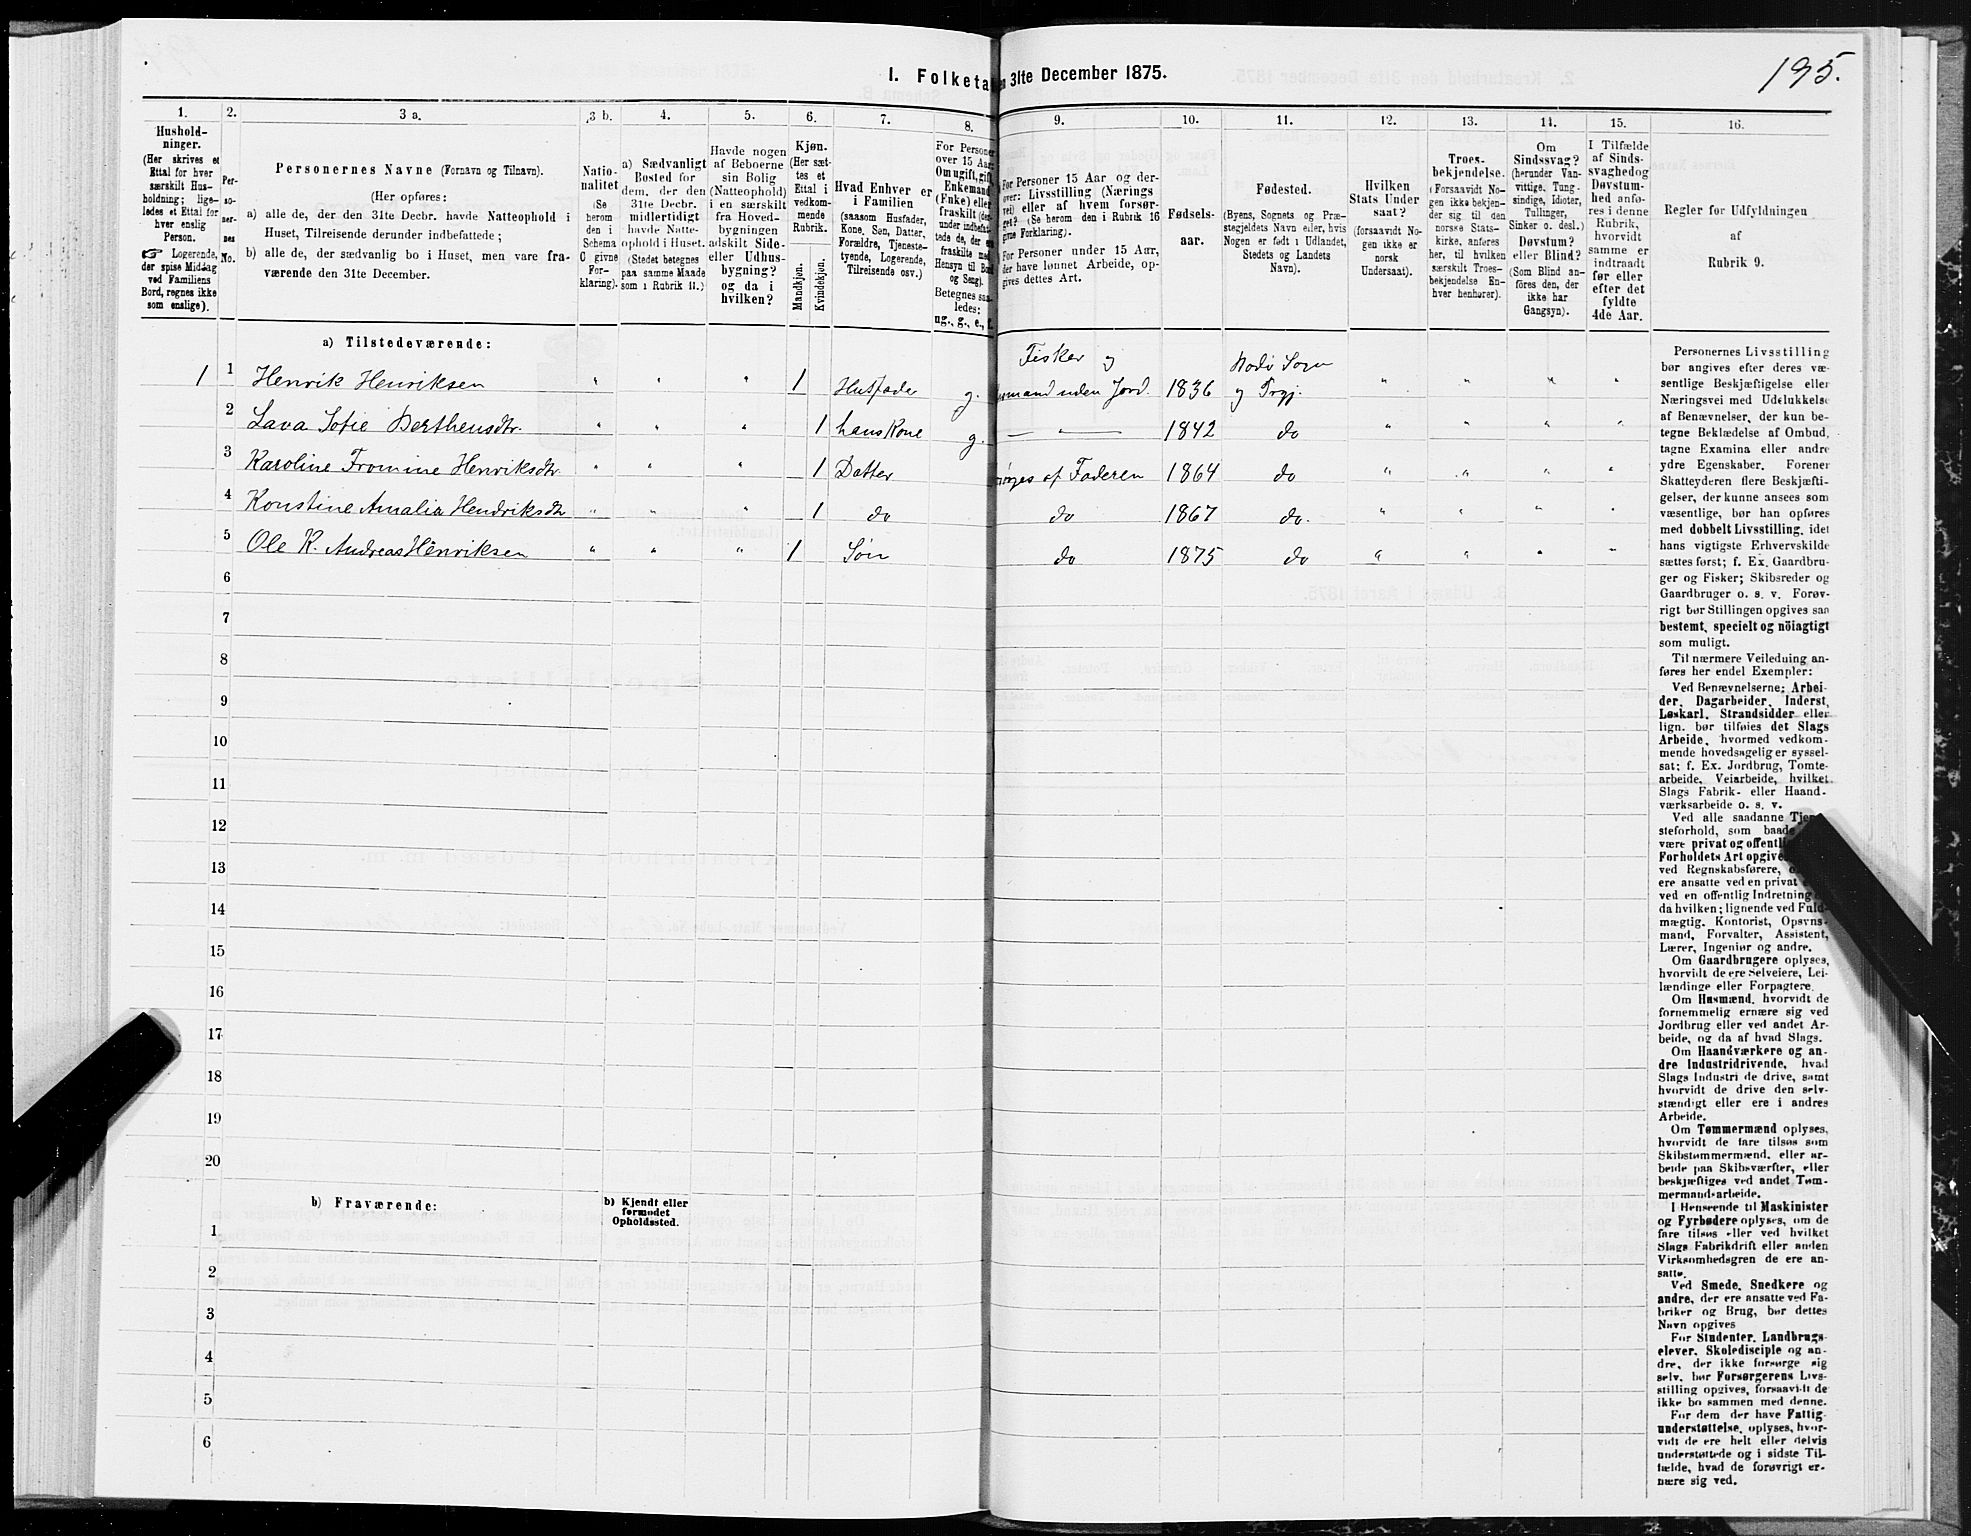 195.
I. Folketa
en 31te December 1875.
1.
Hushold-
ninger.
(Her skrives et
Ettal for hver
særskilt Hus-
holdning; lige-
ledes et Ettal for
hver enslig
Person.
☞ Logerende,
der spise Middag
ved Familiens
Bord, regnes ikke
som enslige).
2.
Per-
so-
ner-
nes
No.
3 a.
Personernes Navne (Fornavn og Tilnavn).
(Her opføres:
a) alle de, der den 31te Decbr. havde Natteophold i
Huset, Tilreisende derunder indbefattede;
b) alle de, der sædvanlig bo i Huset, men vare fra-
værende den 31te December.
3 b.
Natio-
nalitet
(Se
herom
den i
Schema
C givne
For-
klaring).
4.
a) Sædvanligt
Bosted for
dem, der den
31te Decbr.
midlertidigt
havde Natte-
ophold i Huset.
(Stedet betegnes
paa samme Maade
som i Rubrik 11.)
5.
Havde nogen
af Beboerne
sin Bolig
(Natteophold)
i en særskilt
fra Hoved-
bygningen
adskilt Side-
eller Udhus-
bygning?
og da i
hvilken?
6.
Kjøn.
(Her sæt-
tes et
Ettal i
vedkom-
mende
Rubrik.
Mandkjøn.
Kvindekjøn.
7.
Hvad Enhver er
i Familien
(saasom Husfader,
Kone, Søn, Datter,
Forældre, Tjeneste-
tyende, Logerende,
Tilreisende osv.)
8.
For Personer
over 15 Aar
Om ugift, gift,
Enkemand
(Enke) eller
fraskilt (der-
under indbefat-
tede de, der ere
fraskilte med
Hensyn til Bord
og Seng).
Betegnes saa-
ledes:
ug., g., e., f.
9.
For Personer 15 Aar og der-
over: Livsstilling (Nærings
vei) eller af hvem forsør-
get? (Se herom den i Rubrik 16
givne Forklaring).
For Personer under 15 Aar,
der have lønnet Arbeide, op-
gives dettes Art.
10.
Fødsels-
aar.
11.
Fødested.
(Byens, Sognets og Præ-
stegjeldets Navn eller, hvis
Nogen er født i Udlandet,
Stedets og Landets
Navn).
12.
Hvilken
Stats Under
saat?
(forsaavidt No-
gen ikke er
norsk
Undersaat).
13.
Troes-
bekjendelse.
(Forsaavidt No-
gen ikke bekjen-
der sig til den
norske Stats-
kirke, anføres
her, til hvilken
særskilt Troes-
bekjendelse En-
hver henhører).
14.
Om
Sindssvag?
(herunder Van-
vittige, Tung-
sindige, Idioter,
Tullinger,
Sinker o. desl.)
Døvstum?
eller Blind?
(Som Blind an-
føres den, der
ikke har
Gangsyn).
15.
I Tilfælde
af Sinds-
svaghed og
Døvstum-
hed anfø-
res i denne
Rubrik,
hvorvidt
samme er
indtraadt
før eller
efter det
fyldte
4de Aar.
16.
Regler for Udfyldningen
af
Rubrik 9.
a) Tilstedeværende:
1 1 Henrik Henriksen " " " 1 Husfader g. Fisker og
mand uden Jord. 1836 Sogn
og Prgj. " " " "
2 Lava Sofie Berthensdtr. " " " 1 hans Kone g. — " — 1842 do " " " "
3 Karoline Fromine Henriksdtr. " " " 1 Datter af Faderen 1864 do " " " "
4 Konstine Amalia Hendriksdtr " " " 1 do do 1867 do. " " " "
5 Ole K. Andreas Henriksen " " " 1 Søn do 1875 do " " " "
6
7
8
9
10
11
12
13
14
15
16
17
18
19
20
b) Fraværende:
b) Kjendt eller
formodet
Opholdssted.
1
2
3
4
5
6
Personernes Livsstilling
bør angives efter deres væ-
sentlige Beskjæftigelse eller
Næringsvei med Udelukkelse
af Benævnelser, der kun be-
tegne Beklædelse af Ombud,
tagne Examina eller andre
ydre Egenskaber. Forener
Skatteyderen flere Beskjæfti-
gelser, der kunne ansees som
væsentlige, bør han opføres
med dobbelt Livsstilling, idet
hans vigtigste Erhvervskilde
sættes først; f. Ex. Gaardbru-
ger og Fisker; Skibsreder og
Gaardbruger o. s. v. Forøv-
rigt bør Stillingen opgives saa
bestemt, specielt og nöiagtigt
som muligt.
Til nærmere Veiledning an-
føres her endel Exempler:
Ved Benævnelserne: Arbei-
der, Dagarbeider, Inderst,
Løskarl, Strandsidder eller
lign. bør tilføies det Slags
Arbeide, hvormed vedkom-
mende hovedsagelig er syssel-
sat; f. Ex. Jordbrug, Tomte-
arbeide, Veiarbeide, hvilket
Slags Fabrik- eller Haand-
værksarbeide o. s. v.
Ved alle saadanne Tjen-
steforhold, som baade
være privat og offentli
Forholdets Art opgive
ved Regnskabsførere,
ere ansatte ved en privat
ved en offentlig Indretning
da hvilken; lignende ved Fuld-
mægtig, Kontorist, Opsyns-
mand, Forvalter, Assistent,
Lærer, Ingeniør og andre.
Om Gaardbrugere oplyses,
hvorvidt de ere Selveiere, Lei-
lændinge eller Forpagtere.
Om Husmænd, hvorvidt de
fornemmelig ernære sig ved
Jordbrug eller ved andet Ar-
beide, og da af hvad Slags.
Om Haandværkere og an-
dre Industridrivende, hvad
Slags Industri de drive, samt
hvorvidt de drive den selv-
stændigt eller ere i andres
Arbeide.
Om Tømmermænd oplyses,
hvorvidt de fare tilsøs som
Skibstømmermænd, eller ar-
beide paa Skibsværfter, eller
beskjæftiges ved andet Tøm-
mermandsarbeide.
I Henseende til Maskinister
og Fyrbødere oplyses, om de
fare tilsøs eller ved hvilket
Slags Fabrikdrift eller anden
Virksomhedsgren de ere an-
satte.
Ved Smede, Snedkere og
andre, der ere ansatte ved Fa-
briker og Brug, bør dettes
Navn opgives
For Studenter, Landbrugs-
elever, Skoledisciple og an-
dre, der ikke forsørge sig
selv, bør Forsørgerens Livs-
stilling opgives, forsaavidt de
ikke bo sammen med denne.
For dem der have Fattig-
understøttelse, oplyses, hvor-
vidt de ere helt eller delvis
understøttede og i sidste Til-
fælde, hvad de forøvrigt er-
nære sig ved.